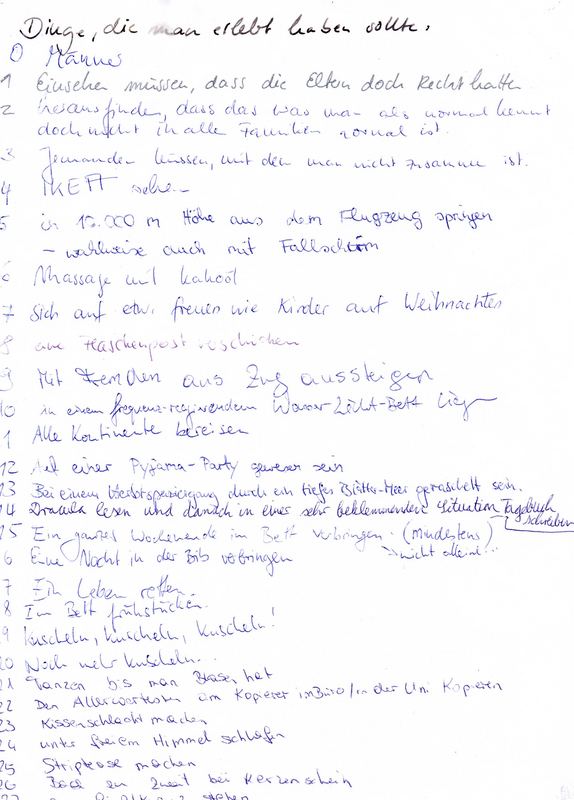 Dinge, die man erlebt haben sollte.
0 Männer
1 Einsehen müssen, dass die Eltern doch Recht hatten
2 herausfinden, dass das was man als normal kennt
doch nicht in alle Familien normal ist.
3 Jemanden küssen, mit dem man nicht zusamme ist.
4
5 in 10.000 m Höhe aus dem Flugzeug springen
- wahlweise auch mit Fallschirm
6 Massage mit
7 Sich auf etw. freuen wie Kinder auf Weihnachten
8 eine Flaschenpost verschicken
9 Mit Fremden aus Zug aussteigen
10 in einem Wasser-Licht-Bett liegen
1 Alle Kontinente bereisen
12 Auf einer Pyjama-Party gewesen sein
13 Bei einem durch ein tiefes Blätter-Meer geraschelt sein.
14 Dracula lesen und danach in einer sehr beklemmenden Situation Tagebuch
schreiben
15 Ein ganzes Wochenende im Bett verbringen. (mindestens)
nicht alleine...
6 Eine Nacht in der Bib verbringen
7 Ein Leben retten.
8 Im Bett frühstücken.
9 kuscheln, kuscheln, kuscheln!
20 Noch mehr kuscheln...
21 Tanzen bis man Blasen hat
22 Den Allerwertesten am Kopierer im Büro/in der Uni kopieren
23 Kissenschlacht machen
24 unter freiem Himmel schlafen
25 Striptease machen
26 Bad zu zweit bei Kerzenschein
27 stehen